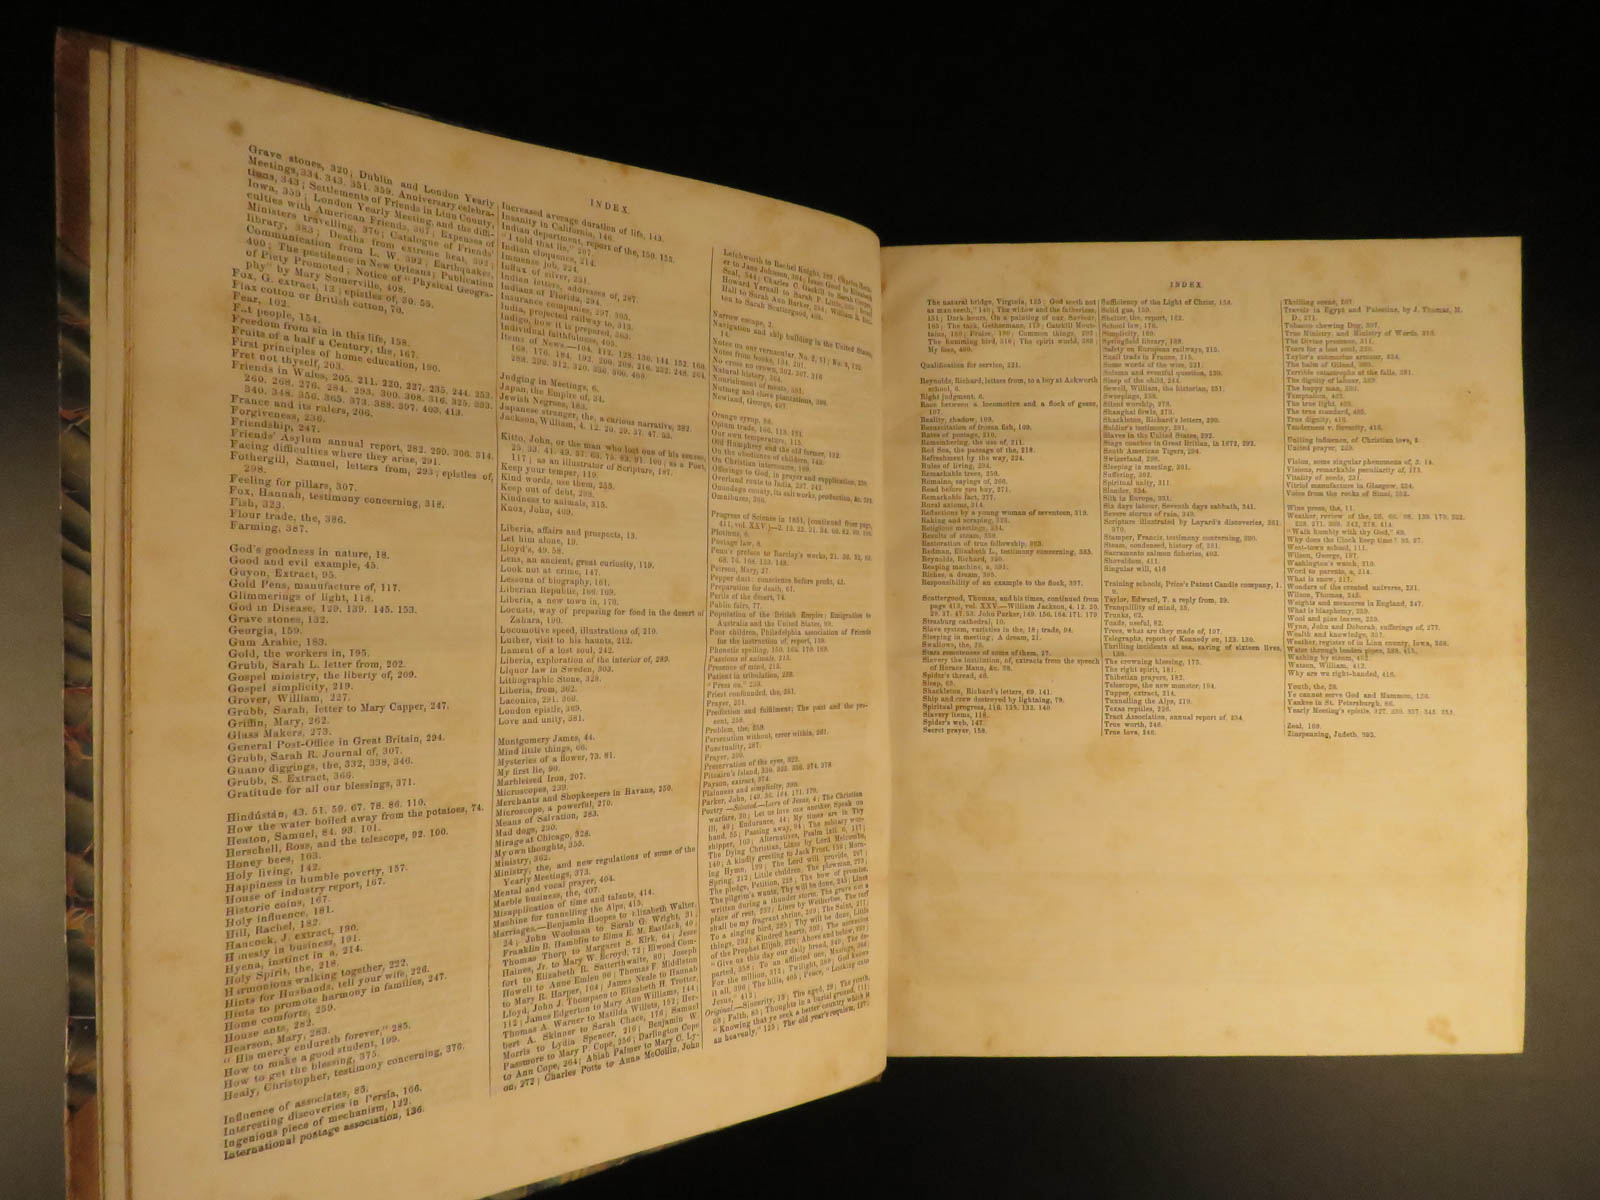 INDEX.
Grave stones, 320; Dublin and London Yearly
Meetings, 334. 343. 351. 359. Anniversary celebra-
tions, 343; Settlements of Friends in Linn County,
Iowa, 359; London Yearly Meeting, and the diffi-
culties with American Friends, 367; Expenses of
Ministers travelling, 376; Catalogue of Friends'
library, 383; Deaths from extreme heat, 392;
Communication from L. W. 392; Earthquakes,
400; The pestilence in New Orleans; Publication
of Piety Promoted; Notice of "Physical Geogra-
phy" by Mary Somerville, 408.
Fox, G. extract, 13; epistles of, 30. 55.
Flax cotton or British cotton, 70.
Fear, 102.
Fat people, 154.
Freedom from sin in this life, 158.
Fruits of a half a Century, the, 167.
First principles of home education, 190.
Fret not thyself, 203.
Friends in Wales, 205. 211. 220. 227. 235. 244. 253.
260. 268. 276. 284. 293. 300. 308. 316. 325. 333.
340. 348. 356. 365. 373. 388. 397. 403. 413.
France and its rulers, 206.
Forgiveness, 236.
Friendship, 247.
Friends' Asylum annual report, 282. 299. 306. 314.
Facing difficulties where they arise, 291.
Fothergill, Samuel, letters from, 293; epistles of,
298.
Feeling for pillars, 307.
Fox, Hannah, testimony concerning, 318.
Fish, 323.
Flour trade, the, 386.
Farming, 387.
God's goodness in nature, 18.
Good and evil example, 45.
Guyon, Extract, 95.
Gold Pens, manufacture of, 117.
Glimmerings of light, 118.
God in Disease, 129. 139. 145. 153.
Grave stones, 132.
Georgia, 159.
Gum Arabic, 183.
Gold, the workers in, 195.
Grubb, Sarah L. letter from, 202.
Gospel ministry, the liberty of, 209.
Gospel simplicity, 219.
Grover, William, 227.
Grubb, Sarah, letter to Mary Capper, 247.
Griffin, Mary, 262.
Glass Makers, 273.
General Post-Office in Great Britain, 294.
Grubb, Sarah R. Journal of, 307.
Guano diggings, the, 332, 338, 346.
Grubb, S. Extract, 366.
Gratitude for all our blessings, 371.
Hindústán, 43. 51. 59. 67. 78. 86. 110.
How the water boiled away from the potatoes, 74.
Heaton, Samuel, 84. 93. 101.
Herschell, Ross, and the telescope, 92. 100.
Honey bees, 103.
Holy living, 142.
Happiness in humble poverty, 157.
House of industry report, 167.
Historic coins, 167.
Holy influence, 181.
Hill, Rachel, 182.
Hancock, J. extract, 190.
Honesty in business, 191.
Hyena, instinct in a, 214.
Holy Spirit, the, 218.
Harmonious walking together, 222.
Hints for Husbands, tell your wife, 226.
Hints to promote harmony in families, 247.
Home comforts, 259.
House ants, 282.
Hearson, Mary, 283.
"His mercy endureth forever," 285.
How to make a good student, 199.
How to get the blessing, 375.
Healy, Christopher, testimony concerning, 376.
Influence of associates, 85.
Interesting discoveries in Persia, 106.
Ingenious piece of mechanism, 122.
International postage association, 136.
Increased average duration of life, 143.
Insanity in California, 146.
Indian department, report of the, 150. 155.
"I told that lie," 207.
Indian eloquence, 214.
Immense job, 224.
Influx of silver, 231.
Indian letters, addresses of, 287.
Indians of Florida, 294.
Insurance companies, 297. 303.
India, projected railway to, 313.
Indigo, how it is prepared, 363.
Individual faithfulness, 405.
Judging in Meetings, 6.
Japan, the Empire of, 34.
Jewish Negroes, 183.
Japanese stranger, the, a curious narrative, 382.
Jackson, William, 4. 12. 20. 29. 37. 47. 53.
Kitto, John, or the man who lost one of his senses,
117; as an illustrator of Scripture, 187.
Keep your temper, 119.
Kind words, use them, 255.
Keep out of debt, 299.
Kindness to animals, 315.
Knox, John, 409.
Liberia, affairs and prospects, 13.
Let him alone, 19.
Lloyd's, 49. 58.
Lens, an ancient, great curiosity, 119.
Look not at crime, 147.
Lessons of biography, 161.
Liberian Republic, 166. 169.
Liberia, a new town in, 170.
Locusts, way of preparing for food in the desert of
Zahara, 190.
Locomotive speed, illustrations of, 210.
Luther, visit to his haunts, 212.
Lament of a lost soul, 242.
Liberia, exploration of the interior of, 289.
Liquor law in Sweden, 303.
Lithographic Stone, 328.
Liberia, from, 362.
Laconics, 291. 366.
London epistle, 369.
Love and unity, 381.
Montgomery James, 44.
Mind little things, 66.
Mysteries of a flower, 73. 81.
My first lie, 90.
Marbleized Iron, 207.
Microscopes, 239.
Merchants and Shopkeepers in Havana, 259.
Microscope, a powerful, 270.
Means of Salvation, 283.
Mad dogs, 290.
Mirage at Chicago, 328.
My own thoughts, 355.
Ministry, 362.
Ministry, the, and new regulations of some of the
Yearly Meetings, 373.
Mental and vocal prayer, 404.
Marble business, the, 407.
Misapplication of time and talents, 414.
Machine for tunnelling the Alps, 415.
Marriages.—Benjamin Hoopes to Elizabeth Walter,
24; John Woolman to Sarah G. Wright, 31;
Franklin B. Hamblin to Elma E. M. Eastlack, 40;
Thomas Thorp to Margaret S. Kirk, 64; Jesse
Haines, Jr. to Mary W. Ecroyd, 72; Elwood Com-
fort to Elizabeth R. Satterthwaite, 80; Joseph
Howell to Anne Emlen 96; Thomas F. Middleton
to Mary R. Harper, 104; James Neale to Hannah
Lloyd, John J. Thompson to Elizabeth H. Trotter,
112; James Edgerton to Mary Ann Williams, 144;
Thomas A. Warner to Matilda Willets, 152; Her-
bert A. Skinner to Sarah Chace, 176; Samuel
Morris to Lydia Spencer, 216; Benjamin W.
Passmore to Mary P. Cope, 256; Darlington Cope
to Ann Cope, 264; Abiah Palmer to Mary C. Ly-
on, 272; Charles Potts to Anna McCollin, John
Letchworth to Rachel Knight,
Narrow escape, 2.
Navigation and ship building in the United States,
14.
Notes from books, 134. 201.
Natural history, 364.
Nourishment of
Newland, George, 407.
Orange syrup, 98.
Opium trade, 106. 113. 121.
Our own temperature, 115.
Old Humphrey and the old farmer, 132.
On the obedience of children, 142.
On Christian intercourse, 169.
Offerings to God, in prayer and supplication, 230.
Overland route to India, 237. 243.
Omnibuses, 390.
Progress of Science in 1851, (continued from page,
Plotinus, 6.
Postage law, 8.
Penn's preface to Barclay's works, 21. 38. 52. 60.
68. 76. 108. 133. 148.
Peirson, Mary, 27.
Pepper dust: conscience before profit, 43.
Preparation for death, 61.
Perils of the desert, 74.
Public fairs, 77.
Population of the British Empire: Emigration to
Australia and the United States, 89.
Poor children, Philadelphia association of Friends
for the instruction of, report, 139.
Phonetic spelling, 150. 163. 170. 189.
Passions of animals, 213.
Presence of mind, 215.
Patient in tribulation, 238.
"Press on," 239.
Priest confounded, the, 251.
Prayer, 251.
Prediction and fulfilment; The past and the pre-
sent, 258.
Problem, the, 259.
Persecution without, error within, 261.
Punctuality, 287.
Prayer, 300.
Preservation of the eyes, 323.
Pitcairn's Island, 330. 353. 356. 374. 378.
Payson, extract, 374.
Plainness and simplicity, 390.
Parker, John, 149. 56. 164. 171. 179.
Poetry.—Selected.—Love of Jesus, 4; The Christian
warfare, 20; Let us love one another, Speak no
Ill, 40; Endurance, 44; My times are in Thy
hand, 55; Passing away, 94; The solitary wor-
shipper, 103; Alternatives, Psalm lxii. 6, 117;
The Dying Christian, Lines by Lord Melcombe,
140; A kindly greeting to Jack Frost, 159; Morn-
ing Hymn, 199; The Lord will provide, 207;
Spring, 212; Little children, The plowman, 273;
The pledge, Petition, 228; The bow of promise,
The pilgrim's wants, Thy will be done, 245; Lines
written during a thunder storm, The grave not a
place of rest, 292; Lines by Wetherbee, The turf
shall be my fragrant shrine, 269; The Saint, 277;
To a singing bird, 285; Thy will be done, Little
things, 292; Kindred hearts, 303; The ascension
of the Prophet Elijah, 326; Above and below, 332;
"Give us this day our daily bread, 340; The de-
parted, 358; To an afflicted one, Musings, 366;
For the million, 373; Twilight, 389; God knows
it all, 396; The hills, 405; Peace, "Looking unto
Jesus," 412;
Original.—Sincerity, 13; The aged, 29; The youth,
69; Faith, 85; Thoughts in a burial ground, 111;
"Knowing that ye seek a better country which is
an heavenly," 125; The old year's requiem, 127;
INDEX.
The natural bridge, Virginia, 135; God seeth not
as man seeth," 140; The widow and the fatherless,
151; Dark hours, On a painting of our Saviour,
165; The task, Gethsemane, 173; Catskill Moun-
tains, 180; Praise, 196; Common things, 292;
The humming bird, 316; The spirit world, 388;
My foes, 400.
Qualification for service, 221.
Reynolds, Richard, letters from, to a boy at Ackworth
school, 6.
Right judgment, 6.
Race between a locomotive and a flock of geese,
107.
Reality, shadow, 109.
Resuscitation of frozen fish, 109.
Rates of postage, 210.
Remembering, the use of, 211.
Red Sea, the passage of the, 218.
Refreshment by the way, 224.
Rules of living, 234.
Remarkable trees, 250.
Remains, sayings of, 266.
Read before you buy, 271.
Remarkable fact, 277.
Rural axioms, 314.
Reflections by a young woman of seventeen, 319.
Raking and scraping, 323.
Religious meetings, 334.
Results of steam, 350.
Restoration of true fellowship, 363.
Redman, Elizabeth L., testimony concerning, 383.
Reynolds, Richard, 390.
Reaping machine, a, 391.
Riches, a dream, 395.
Responsibility of an example to the flock, 397.
Scattergood, Thomas, and his times, continued from
page 413, vol. XXV.—William Jackson, 4. 12. 20.
29. 37. 47. 53. John Parker, 149. 156. 164. 171. 179
Strasburg cathedral, 10.
Slave system, varieties in the, 18; trade, 94.
Sleeping in meeting; A dream, 21.
Swallows, the, 25.
Stars remoteness of some of them, 27.
Slavery the institution, of, extracts from the speech
of Horace Mann, &c. 28.
Spider's thread, 46.
Sleep, 63.
Shackleton, Richard's letters, 69. 141.
Ship and crew destroyed by lightning, 79.
Spiritual progress, 116. 125. 132. 140.
Slavery items, 118.
Spider's web, 147.
Secret prayer, 158.
Sufficiency of the Light of Christ, 158.
Solid gas, 159.
Shelter, the, report, 162.
School law, 178.
Simplicity, 189.
Springfield library, 188.
Safety on European railways, 215.
Snail trade in France, 215.
Some words of the wise, 221.
Solemn and eventful question, 239.
Sleep of the child, 244.
Sewell, William, the historian, 251.
Sweepings, 258.
Silent worship, 278.
Shanghai fowls, 279.
Shackleton, Richard's letters, 290.
Soldier's testimony, 291.
Slaves in the United States, 292.
Stage coaches in Great Britian, in 1672, 292.
South American Tigers, 294.
Switzerland, 298.
Sleeping in meeting, 301.
Suffering, 302.
Spiritual unity, 311.
Slander, 334.
Silk in Europe, 351.
Six days labour, Seventh days sabbath, 341.
Severe storms of rain, 343.
Scripture illustrated by Layard's discoveries, 361.
370.
Stamper, Francis, testimony concerning, 380.
Steam, condensed, history of, 381.
Sacramento salmon fisheries, 402.
Shovaldom, 411.
Singular will, 416
Training schools, Price's Patent Candle company, 1.
9.
Taylor, Edward, T. a reply from, 39.
Tranquillity of mind, 53.
Trunks, 62.
Toads, useful, 82.
Trees, what are they made of, 107.
Telegraphs, report of Kennedy on, 123. 130.
Thrilling incidents at sea, saving of sixteen lives,
138.
The crowning blessing, 175.
The right spirit, 181.
Thibetian prayers, 182.
Telescope, the new monster, 194.
Tupper, extract, 214.
Tunneling the Alps, 219.
Texas reptiles, 226.
Tract Association, annual report of, 234.
True worth, 246.
True love, 246.
Thrilling scene, 267.
Travels in Egypt and Palestine, by J. Thomas, M.
D., 271.
Tobacco chewing Dog, 307.
True Ministry; and Ministry of Words, 310.
The Divine presence, 311.
Tears for a lost soul, 330.
Taylor's submarine armour, 334.
The balm of Gilead, 365.
Terrible catastrophe at the falls, 381.
The dignity of labour, 389.
The happy man, 393.
Temptation, 403.
The true light, 405.
The true standard, 405.
True dignity, 415.
Tenderness v. Severity, 416.
Uniting influence, of Christian love, 2.
United prayer, 228.
Vision, some singular phenomena of, 3. 14.
Visions, remarkable peculiarity of, 173.
Vitality of seeds, 231.
Vitriol manufacture in Glasgow, 234.
Voice from the rocks of Sinai, 252.
Wine press, the, 11.
"Walk humbly with thy God," 69.
Why does the Clock keep time? 93. 97.
West-town school, 111.
Wilson, George, 197.
Washington's watch, 210.
Word to parents, a, 214.
What is snow, 217.
Wonders of the created universe, 231.
Wilson, Thomas, 245.
Weights and measures in England, 247.
What is blasphemy, 259.
Wool and pine leaves, 259.
Wynn, John and Deborah, sufferings of, 277.
Wealth and knowledge, 351.
Weather, register of in Linn county, Iowa, 368.
Water through leaden pipes, 388. 415.
Washing by steam, 402.
Watson, William, 412.
Why are we right-handed, 416.
Youth, the, 29.
Ye cannot serve God and Mammon, 126.
Yankee in St. Petersburgh, 86.
Yearly Meeting's epistle, 327. 336. 337. 345. 353.
Zeal, 109.
Zinspenning, Judith, 293.